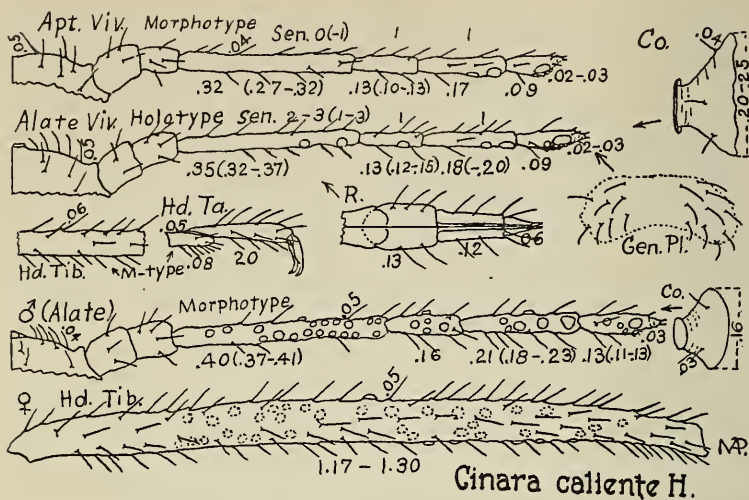 Apt. Viv. Morphotype Sen. 0(-1) 1 1
.05 .04 Co. .04
.32 (.27-.32) .13(.10-.13) .17 .09 .02-.03 .20-.25
Alate Viv. Holotype Sen. 2-3(1-3) 1 1
.05 .02-.03
.35(.32-.37) .13(.12-.15) .18(-.20) .09
.06 Hd. Ta. R.
.05
Hd. Tib. M-type .08 .20 .13 .12 .06 Gen. Pl.
♂ (Alate) Morphotype .05 Co.
.04 .03 .16
.40(.37-.41) .16 .21(.18-.23) .13(.11-.13) .03
♀ Hd. Tib. .05
1.17 - 1.30 M.P.
Cinara caliente H.